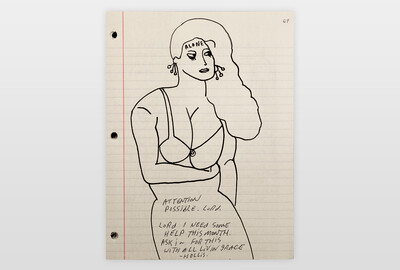 67
ALONE
ATTENTION
POSSIBLE.. LORD.
LORD. I NEED SOME
HELP THIS MONTH.
ASK in FOR THIS
WITH ALL LOVIN GRACE
-HOLLIS.